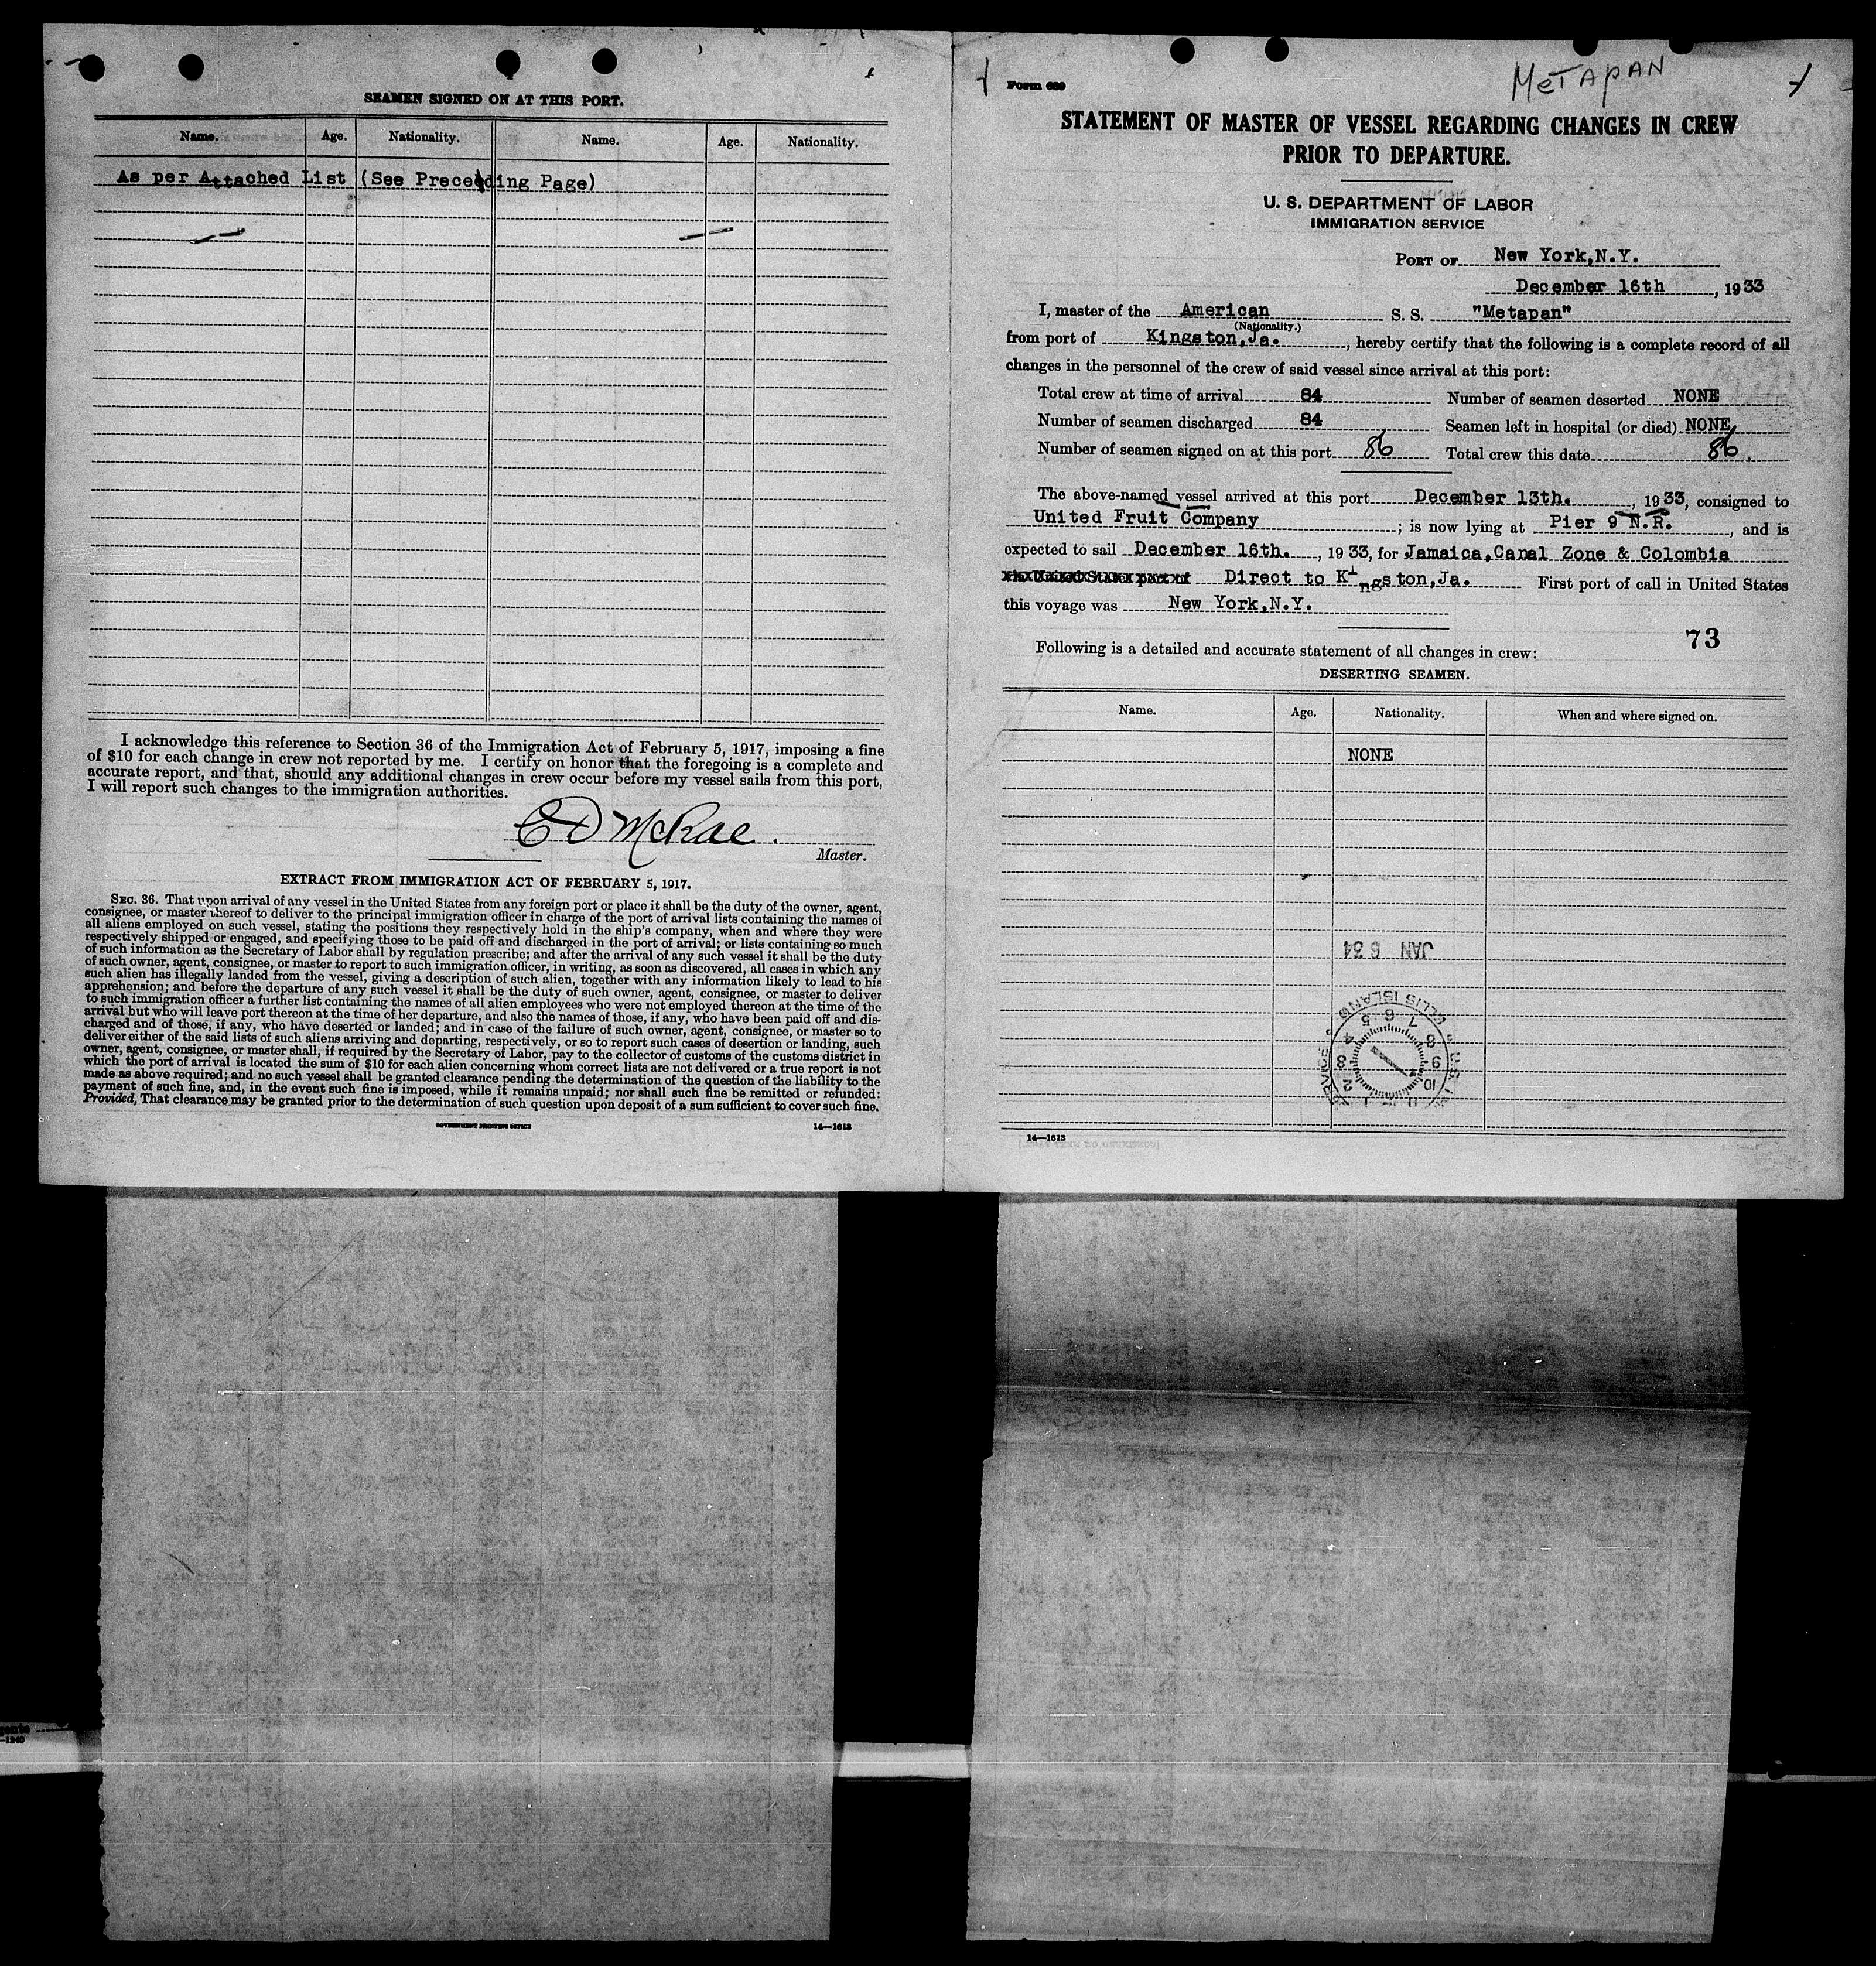 SEAMEN SIGNED ON AT THIS PORT.
Name. Age. Nationality. Name. Age. Nationality.
As per Attached List (See Preceding Page)
I acknowledge this reference to Section 36 of the Immigration Act of February 5, 1917, imposing a fine
of $10 for each change in crew not reported by me. I certify on honor that the foregoing is a complete and
accurate report, and that, should any additional changes in crew occur before my vessel sails from this port,
I will report such changes to the immigration authorities.
E D McRae.
Master.
EXTRACT FROM IMMIGRATION ACT OF FEBRUARY 5, 1917.
SEC. 36. That upon arrival of any vessel in the United States from any foreign port or place it shall be the duty of the owner, agent,
consignee, or master thereof to deliver to the principal immigration officer in charge of the port of arrival lists containing the names of
all aliens employed on such vessel, stating the positions they respectively hold in the ship's company, when and where they were
respectively shipped or engaged, and specifying those to be paid off and discharged in the port of arrival; or lists containing so much
of such information as the Secretary of Labor shall by regulation prescribe; and after the arrival of any such vessel it shall be the duty
of such owner, agent, consignee, or master to report to such immigration officer, in writing, as soon as discovered, all cases in which any
such alien has illegally landed from the vessel, giving a description of such alien, together with any information likely to lead to his
apprehension; and before the departure of any such vessel it shall be the duty of such owner, agent, consignee, or master to deliver
to such immigration officer a further list containing the names of all alien employees who were not employed thereon at the time of the
arrival but who will leave port thereon at the time of her departure, and also the names of those, if any, who have been paid off and dis-
charged and of those, if any, who have deserted or landed; and in case of the failure of such owner, agent, consignee, or master so to
deliver either of the said lists of such aliens arriving and departing, respectively, or so to report such cases of desertion or landing, such
owner, agent, consignee, or master shall, if required by the Secretary of Labor, pay to the collector of customs of the customs district in
which the port of arrival is located the sum of $10 for each alien concerning whom correct lists are not delivered or a true report is not
made as above required; and no such vessel shall be granted clearance pending the determination of the question of the liability to the
payment of such fine, and, in the event such fine is imposed, while it remains unpaid; nor shall such fine be remitted or refunded:
Provided, That clearance may be granted prior to the determination of such question upon deposit of a sum sufficient to cover such fine.
GOVERNMENT PRINTING OFFICE 14—1613
Form 689
METAPAN
STATEMENT OF MASTER OF VESSEL REGARDING CHANGES IN CREW
PRIOR TO DEPARTURE.
U. S. DEPARTMENT OF LABOR
IMMIGRATION SERVICE
PORT OF New York,N.Y.
December 16th, 1933
I, master of the American S. S. "Metapan"
(Nationality.)
from port of Kingston,Ja., hereby certify that the following is a complete record of all
changes in the personnel of the crew of said vessel since arrival at this port:
Total crew at time of arrival 84 Number of seamen deserted NONE
Number of seamen discharged 84 Seamen left in hospital (or died) NONE
Number of seamen signed on at this port 86 Total crew this date 86.
The above-named vessel arrived at this port December 13th., 1933, consigned to
United Fruit Company; is now lying at Pier 9 N.R., and is
expected to sail December 16th., 1933, for Jamaica,Canal Zone & Colombia
Direct to Kingston,Ja. First port of call in United States
this voyage was New York,N.Y.
73
Following is a detailed and accurate statement of all changes in crew:
DESERTING SEAMEN.
Name. Age. Nationality. When and where signed on.
NONE
JAN 6 34
ELLIS ISLAND
14—1613